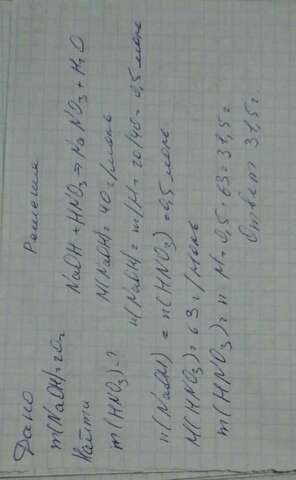 Дано
Решение
m(NaOH)=20г
Найти
m(HNO₃)-?
NaOH + HNO₃ → NaNO₃ + H₂O
M(NaOH)= 40 г/моль
n(NaOH)= m/M = 20/40 = 0,5 моль
n(NaOH) = n(HNO₃) = 0,5 моль
M(HNO₃)= 63 г/моль
m(HNO₃)= n · M = 0,5 · 63 = 31,5 г
Ответ 31,5 г